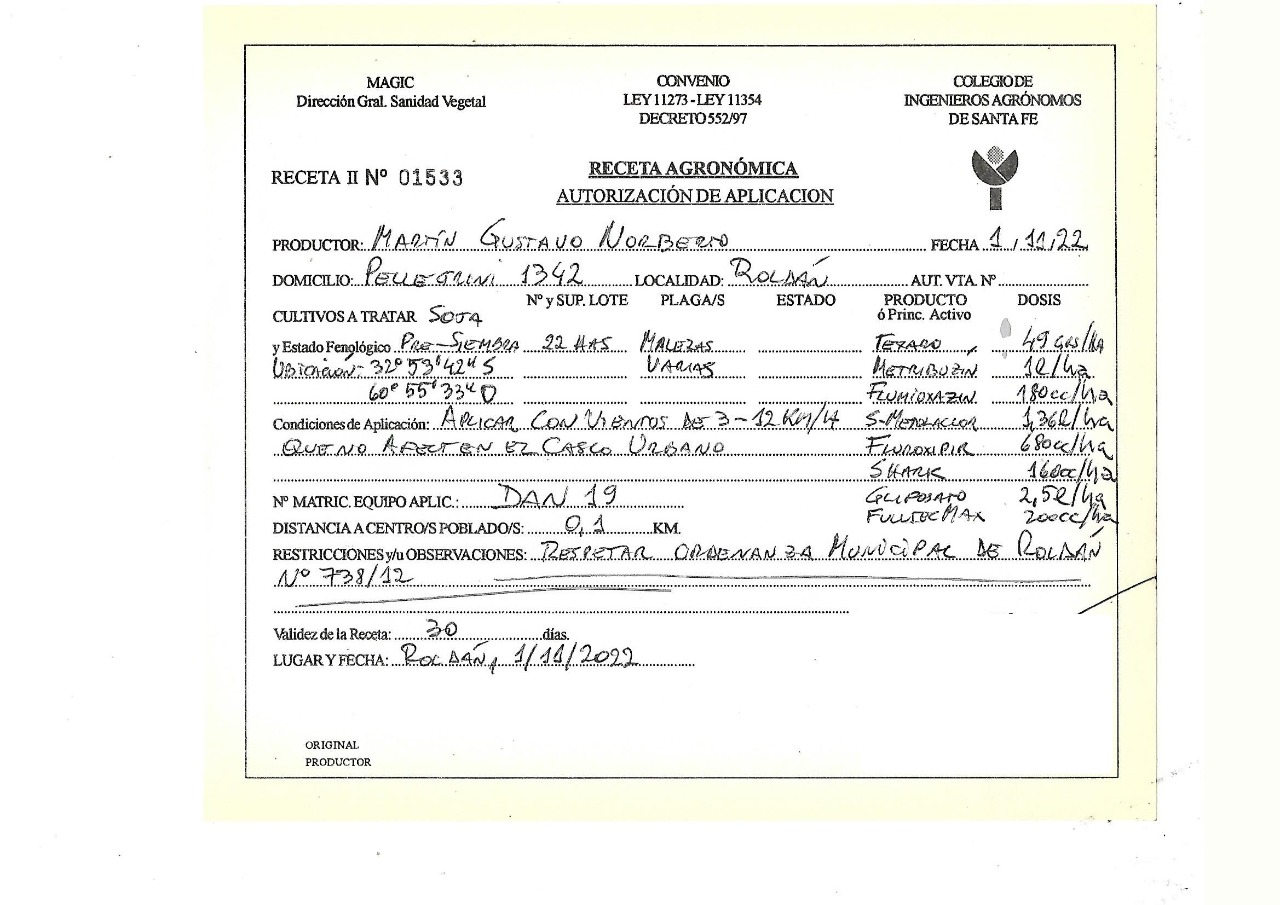 MAGIC CONVENIO COLEGIO DE
Dirección Gral. Sanidad Vegetal LEY 11273 - LEY 11354 INGENIEROS AGRÓNOMOS
DECRETO 552/97 DE SANTA FE
RECETA AGRONÓMICA
RECETA II Nº 01533
AUTORIZACIÓN DE APLICACION
PRODUCTOR: MARTÍN GUSTAVO NORBERTO FECHA 1/11/22
DOMICILIO: PELLEGRINI 1342 LOCALIDAD: ROLDÁN AUT. VTA. Nº
Nº y SUP. LOTE PLAGA/S ESTADO PRODUCTO DOSIS
CULTIVOS A TRATAR SOJA ó Princ. Activo
y Estado Fenológico PRE-SIEMBRA 22 HAS MALEZAS TEXARO 49 grs/ha
UBICACIÓN: 32° 53' 42" S VARIAS METRIBUZIN 1l/ha
60° 55' 33" O FLUMIOXAZIN 180cc/ha
Condiciones de Aplicación: APLICAR CON VIENTOS DE 3-12 KM/H S-METOLACLOR 1,36l/ha
QUE NO AFECTEN EL CASCO URBANO FLUROXIPIR 680cc/ha
SHARK 160cc/ha
Nº MATRIC. EQUIPO APLIC.: DAN 19 GLIFOSATO 2,5l/ha
FULLTEC MAX 200cc/ha
DISTANCIA A CENTRO/S POBLADO/S: 0,1 KM.
RESTRICCIONES y/u OBSERVACIONES: RESPETAR ORDENANZA MUNICIPAL DE ROLDÁN
Nº 738/12
Validez de la Receta: 30 días.
LUGAR Y FECHA: ROLDÁN, 1/11/2022
ORIGINAL
PRODUCTOR